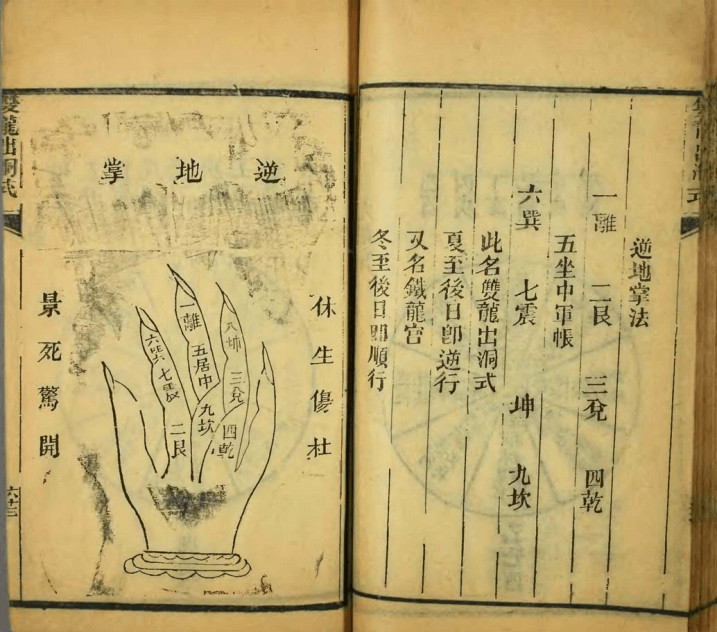 逆地掌法
一離 二艮 三兌 四乾
五坐中軍帳
六巽 七震 坤 九坎
此名雙龍出洞式
夏至後日卽逆行
又名鐵龍宮
冬至後日卽順行
逆地掌
休生傷杜
八坤 三兌 四乾
一離 五居中 九坎
六巽 七震 二艮
景死驚開
雙龍出洞式